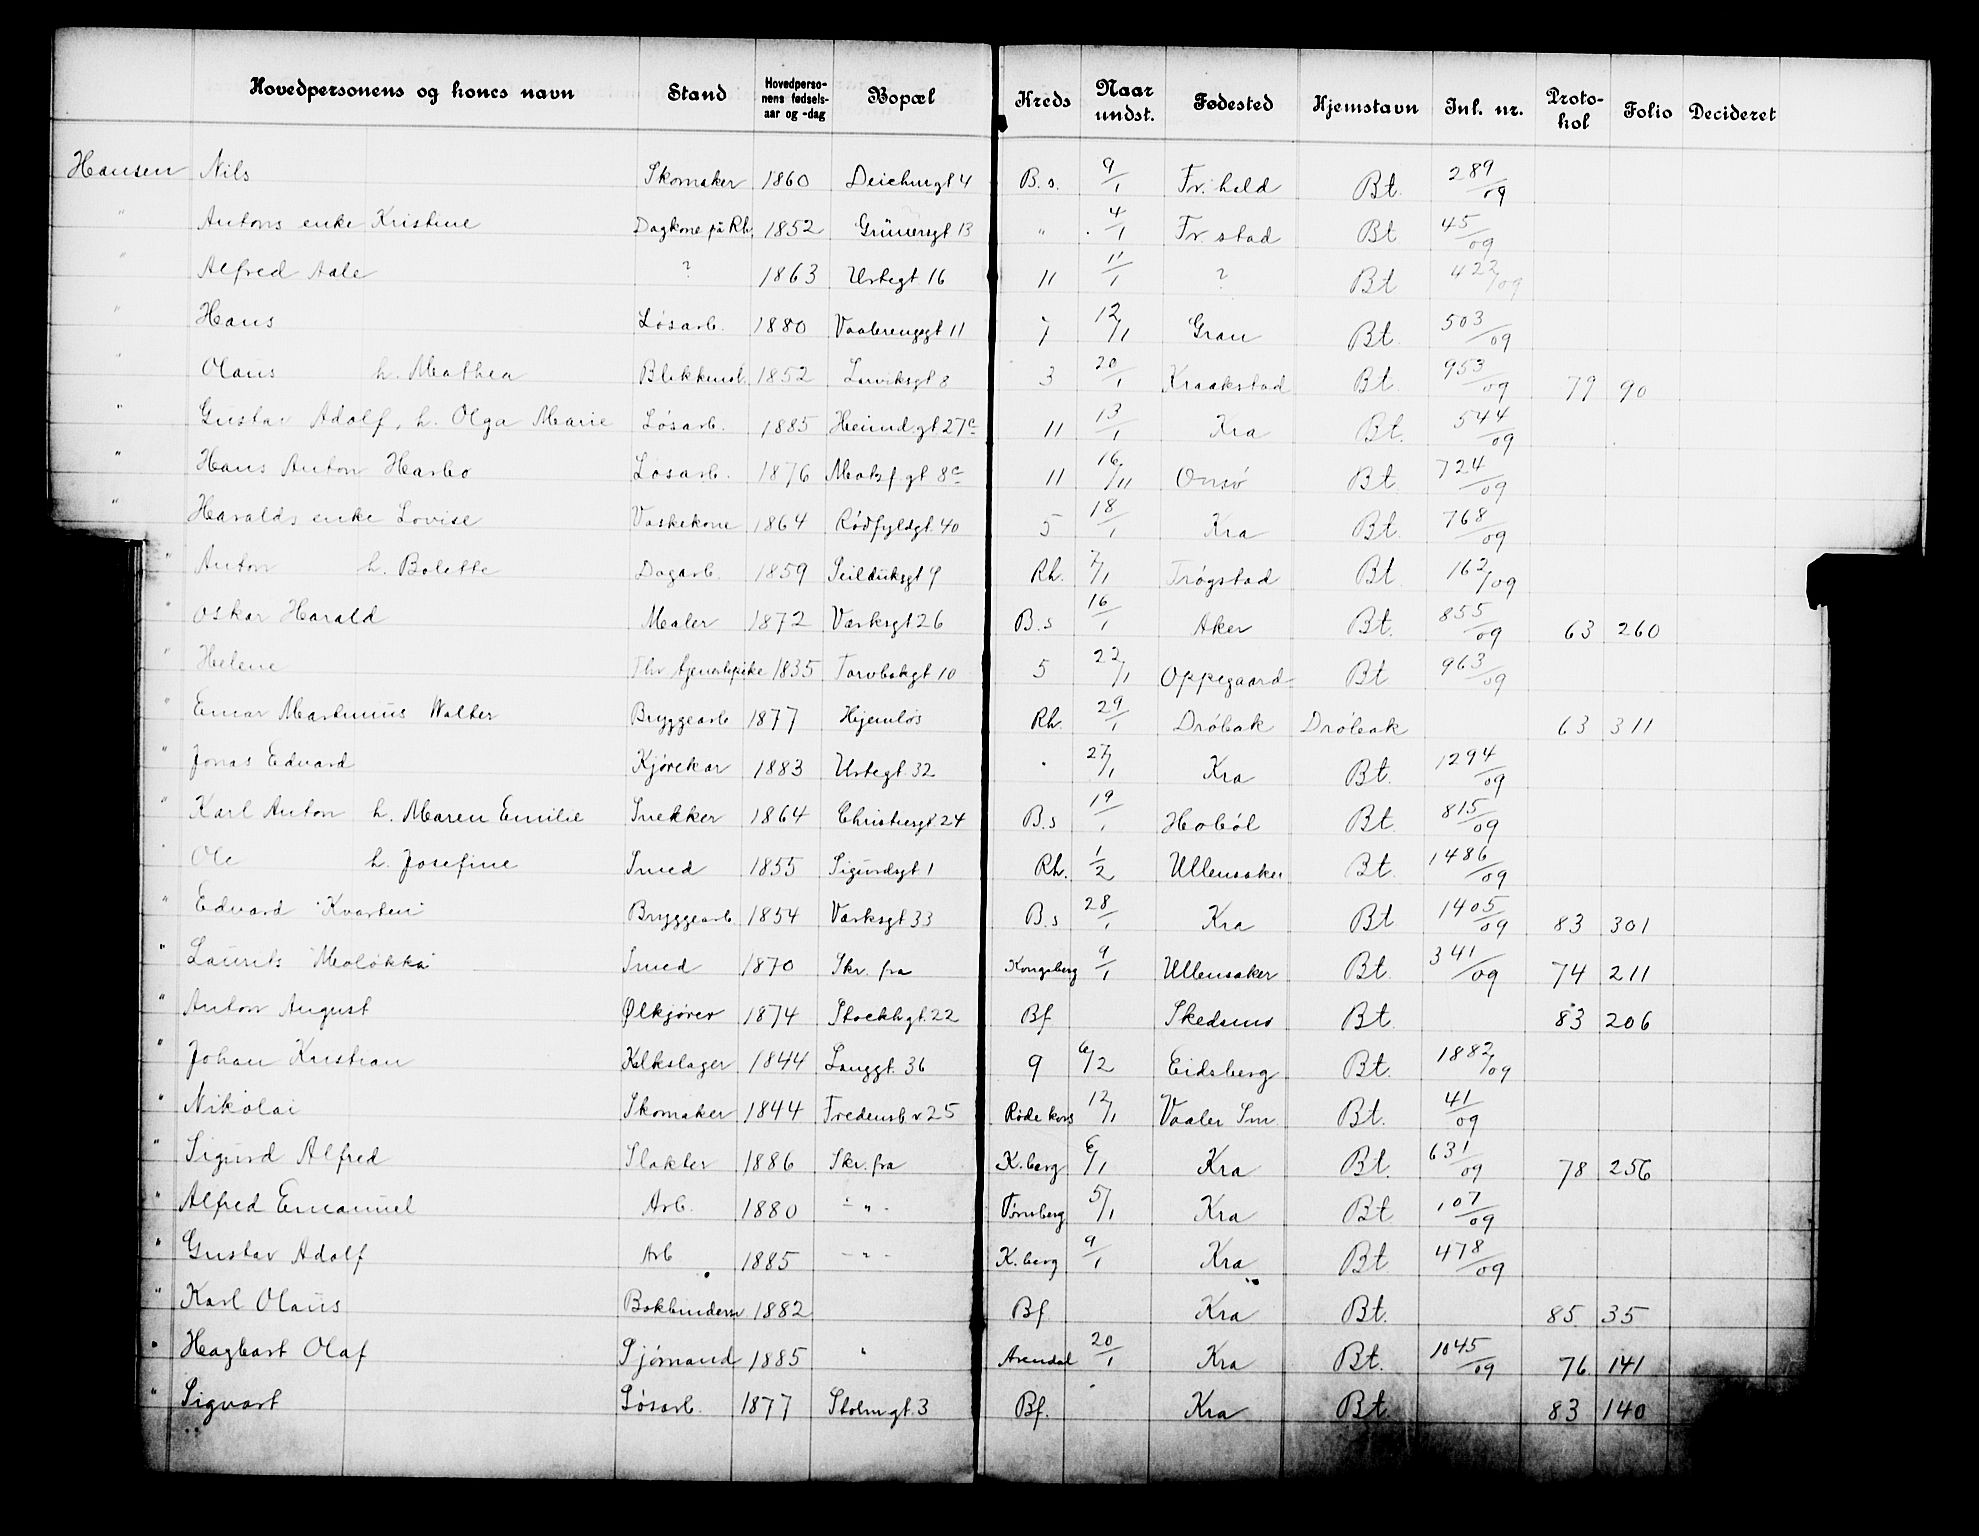 Hovedpersonens og kones navn Stand Hovedpersonens fødselsaar og -dag Bopæl Kreds Naar undst. Fødested Hjemstavn Inl. nr. Protokol Folio Decideret
Hansen Nils Skomaker 1860 Deichmgt 4 B.s. 9/1 Fr.hald Bt. 289/09
" Antons enke Kristine Dagkone på Rh. 1852 Grünersgt 13 " 4/1 Fr.stad Bt 45/09
" Alfred Aale ? 1863 Urtegt 16 11 11/1 ? Bt 422/09
" Hans Løsarb. 1880 Vaalerenggt 11 7 12/1 Gran Bt. 503/09
" Olaus h. Mathea Blikkensl. 1852 Larviksgt 8 3 20/1 Kraakstad Bt. 953/09 79 90
" Gustav Adolf, h. Olga Marie Løsarb. 1885 Heimd.gt 27c 11 13/1 Kra Bt. 544/09
" Hans Anton Harbo Løsarb. 1876 Motzf gt 8c 11 16/11 Onsø Bt 724/09
" Haralds enke Lovise Vaskekone 1864 Rødfyldgt 40 5 18/1 Kra Bt. 768/09
" Anton h. Bolette Dagarb. 1859 Seilduksgt 9 Rh. 7/1 Trøgstad Bt 162/09
" Oskar Harald Maler 1872 Værksgt 26 B.s 16/1 Aker Bt. 855/09 63 260
" Helene Fhv tjenestepike 1835 Torvbakgt 10 5 22/1 Oppegaard Bt 963/09
" Einar Martinius Walter Bryggearb 1877 Hjemløs Rh. 29/1 Drøbak Drøbak 63 311
" Jonas Edvard Kjørekar 1883 Urtegt. 32 " 27/1 Kra Bt. 1294/09
" Karl Anton h. Maren Emilie Snekker 1864 Christiesgt 24 B.s 19/1 Hobøl Bt. 815/09
" Ole h. Josefine Smed 1855 Sigurdsgt 1 Rh. 1/2 Ullensaker Bt. 1486/09
" Edvard "Kvarten" Bryggearb. 1854 Værksgt 33 B.s 28/1 Kra Bt 1405/09 83 301
" Laurits "Moløkka" Smed 1870 Skr. fra Kongsberg 9/1 Ullensaker Bt. 341/09 74 211
" Anton August Ølkjører 1874 Stockhgt. 22 Bf Skedsmo Bt 83 206
" Johan Kristian Kelkslager 1844 Langgt. 36 9 6/2 Eidsberg Bt. 1882/09
" Nikolai Skomaker 1844 Fredensb v 25 Røde kors 12/1 Vaaler Sm. Bt. 41/09
" Sigurd Alfred Slakter 1886 Skr. fra K.berg 6/1 Kra Bt. 631/09 78 256
" Alfred Emanuel Arb. 1880 - " - Tønsberg 5/1 Kra Bt 107/09
" Gustav Adolf Arb 1885 - " - K.berg 9/1 Kra Bt 478/09
" Karl Olaus Bokbindersv. 1882 Bf Kra Bt. 85 35
" Hagbart Olaf Sjømand 1885 " Arendal 20/1 Kra Bt. 1045/09 76 141
" Sigvart Løsarb. 1877 Stolmgt. 3 Bf. Kra Bt. 83 140